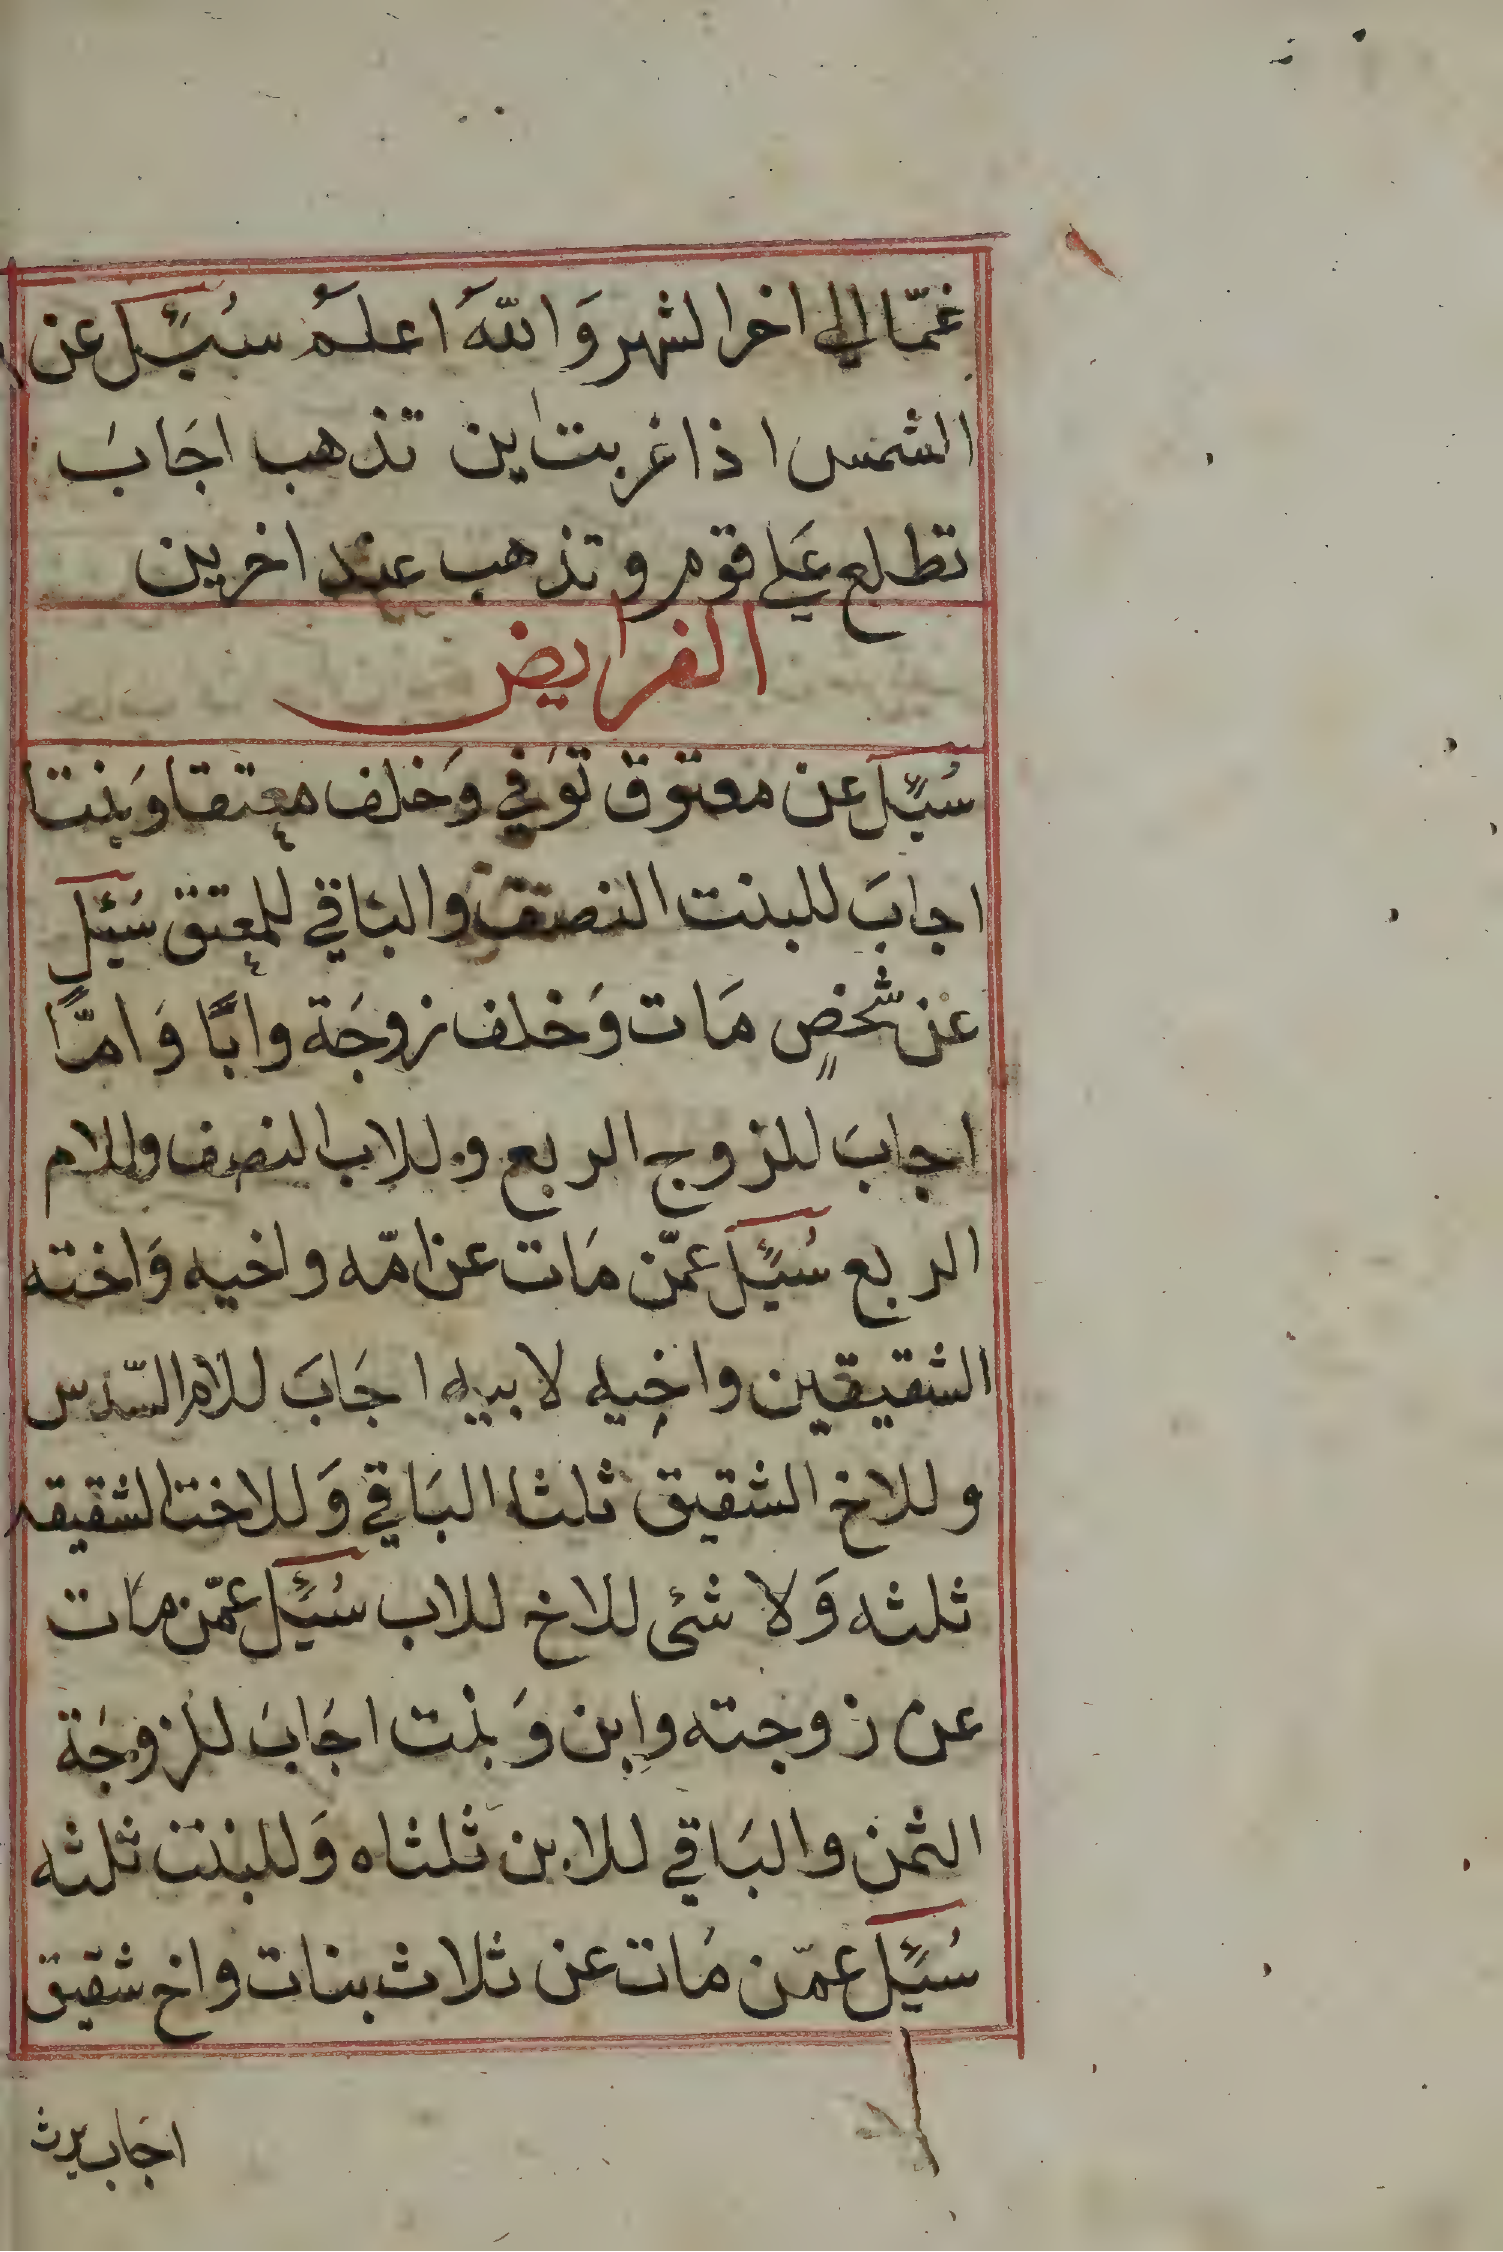 غمّا الي اخر الشهر وَاللّٰهُ اعلمُ سُئِلَ عن
الشمس اذا غربت اين تذهب اجَابَ
تطلع عَلي قوم وتذهب عند اخرين
الفرايض
سُئِلَ عن معتوق توَفي وَخلف معتقا وَبنتا
اجابَ للبنت النصف والباقي للمعتق سُئِلَ
عن شّخصٍ مَات وَخلف زوجَة وابًا وَامّا
اجابَ للزوج الربع وللاب النصف وللام
الربع سُئِلَ عمّن مَات عن امّه واخيه وَاخته
الشقيقين واخيه لابيه اجَابَ للام السّدس
وللاخ الشقيق ثلثا البَاقي وَللاخت الشقيقه
ثلثه وَلا شئ للاخ للاب سُئِلَ عمّن مات
عن زوجته وابن وَبنت اجَابَ للزوجَة
الثمن والبَاقي للابن ثلثاه وَللبنت ثلثه
سُئِلَ عمّن مَات عن ثلاث بنات واخ شقيق
اجَاب يرث